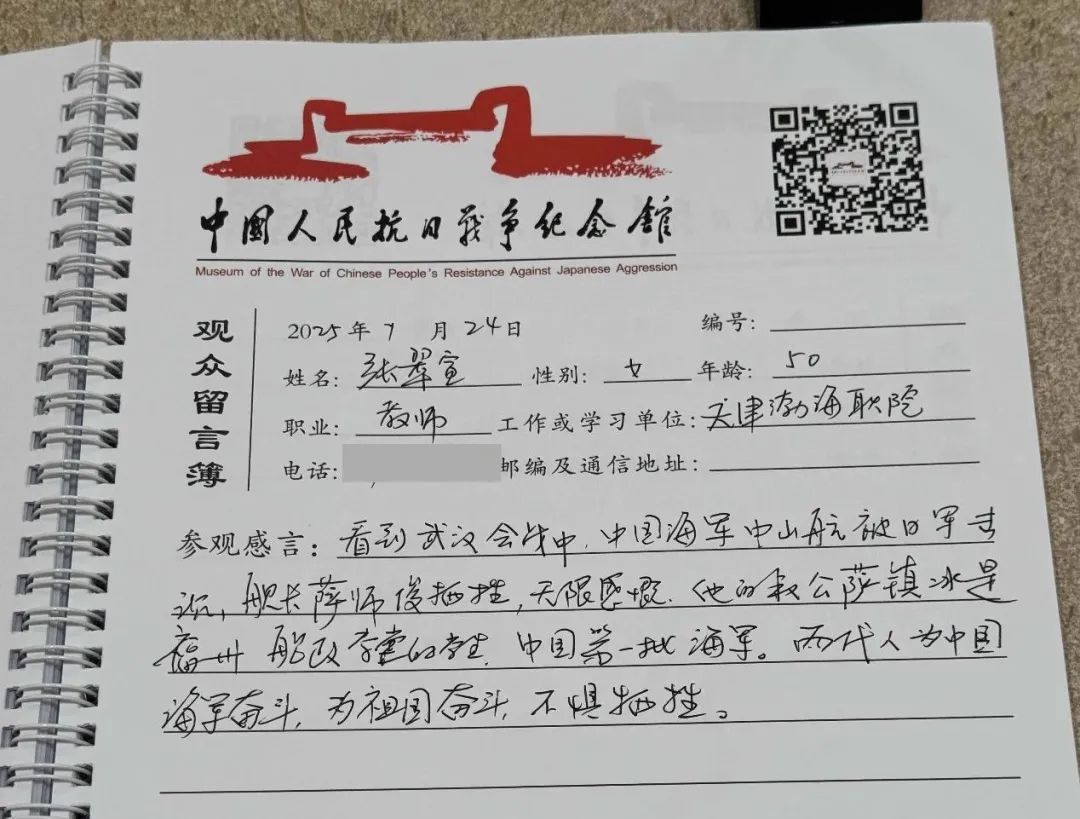 中國人民抗日戰爭纪念館
Museum of the War of Chinese People's Resistance Against Japanese Aggression
观众留言簿
2025年7月24日 编号:
姓名: 张翠宣 性别: 女 年龄: 50
职业: 教师 工作或学习单位: 天津渤海职院
电话: 邮编及通信地址:
参观感言: 看到武汉会战中,中国海军中山舰被日军击
沉,舰长萨师俊牺牲,无限感慨.他的叔公萨镇冰是
福州船政学堂的学生,中国第一批海军。两代人为中国
海军奋斗,为祖国奋斗,不惧牺牲。